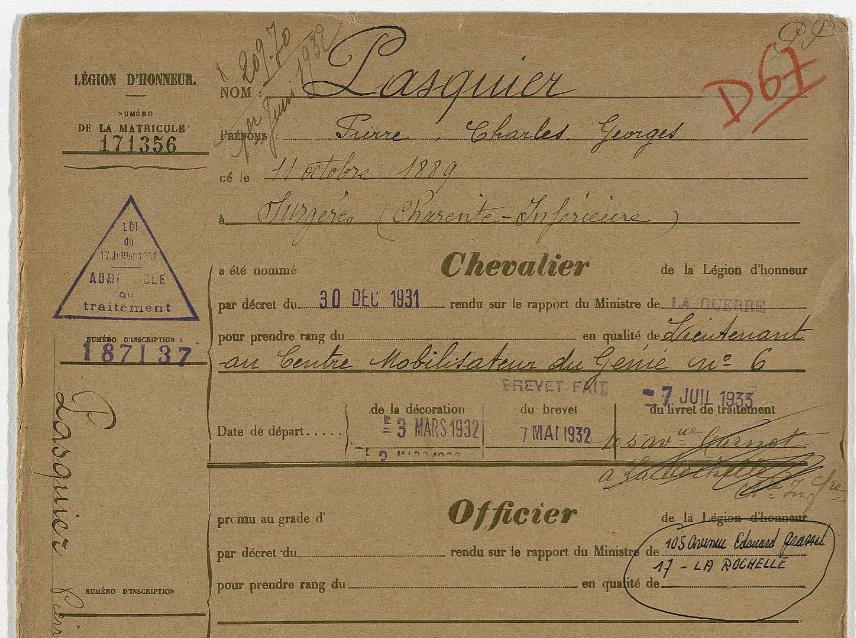 LÉGION D'HONNEUR.
NUMÉRO
DE LA MATRICULE
171356
LOI
du
ADMISSIBLE
au
traitement
NUMÉRO D'INSCRIPTION :
187137
Pasquier
NUMÉRO D'INSCRIPTION
20970
1er Juin 1932
D67
NOM : Pasquier
PRÉNOMS : Pierre, Charles. Georges
né le 11 octobre 1889
à Surgères (Charente-Inférieure)
a été nommé Chevalier de la Légion d'honneur
par décret du 30 DEC 1931 rendu sur le rapport du Ministre de LA GUERRE
pour prendre rang du en qualité de Lieutenant
au Centre Mobilisateur du Génie nº 6
BREVET FAIT
-7 JUIL 1933
de la décoration du brevet du livret de traitement
Date de départ..... -3 MARS 1932 7 MAI 1932
105 av Carnot
à La Rochelle
promu au grade d' Officier de la Légion d'honneur
par décret du rendu sur le rapport du Ministre de 105 Avenue Edouard Grasset
17 - LA ROCHELLE
pour prendre rang du en qualité de